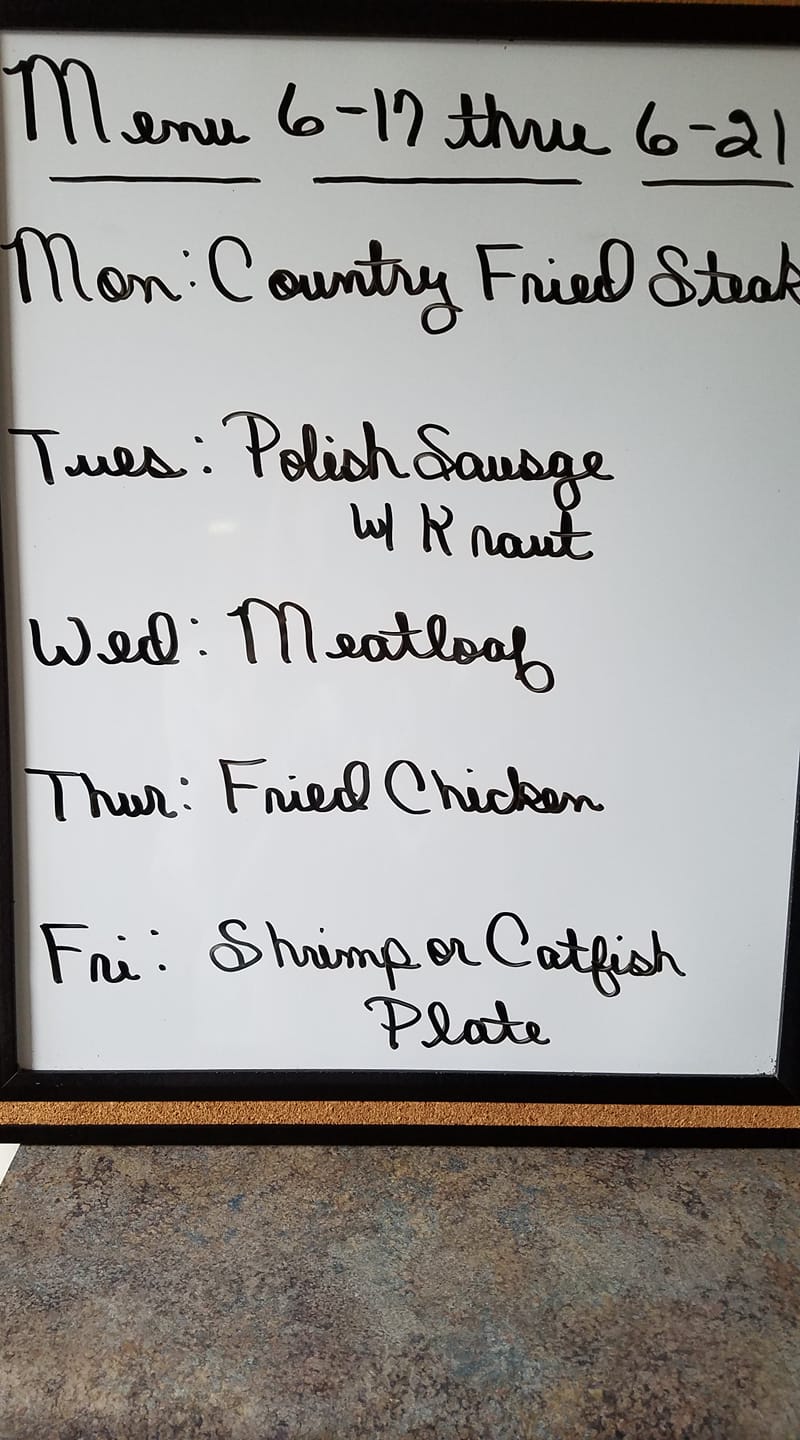 Menu 6-17 thru 6-21
Mon: Country Fried Steak
Tues: Polish Sausge
w/ Kraut
Wed: Meatloaf
Thur: Fried Chicken
Fri: Shrimp or Catfish
Plate